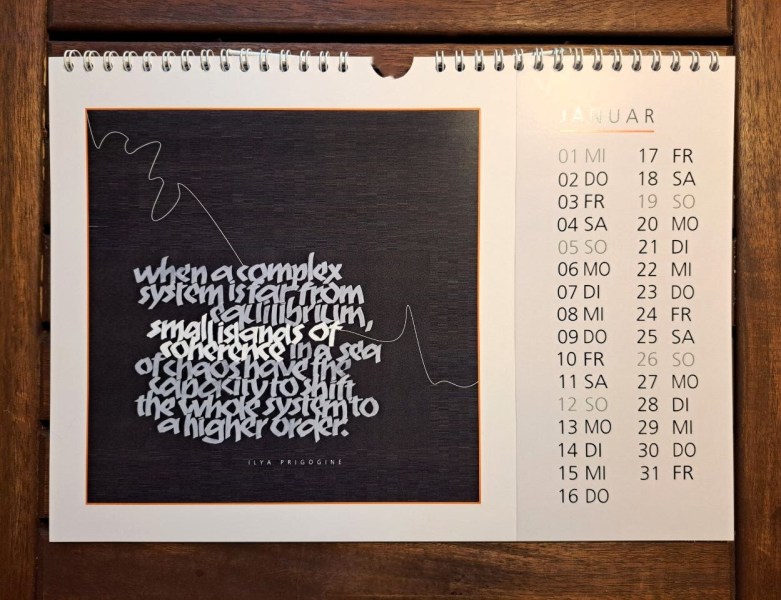 when a complex
system is far from
equilibrium,
small islands of
coherence in a sea
of chaos have the
capacity to shift
the whole system to
a higher order.
ILYA PRIGOGINE
JANUAR
01 MI 17 FR
02 DO 18 SA
03 FR 19 SO
04 SA 20 MO
05 SO 21 DI
06 MO 22 MI
07 DI 23 DO
08 MI 24 FR
09 DO 25 SA
10 FR 26 SO
11 SA 27 MO
12 SO 28 DI
13 MO 29 MI
14 DI 30 DO
15 MI 31 FR
16 DO